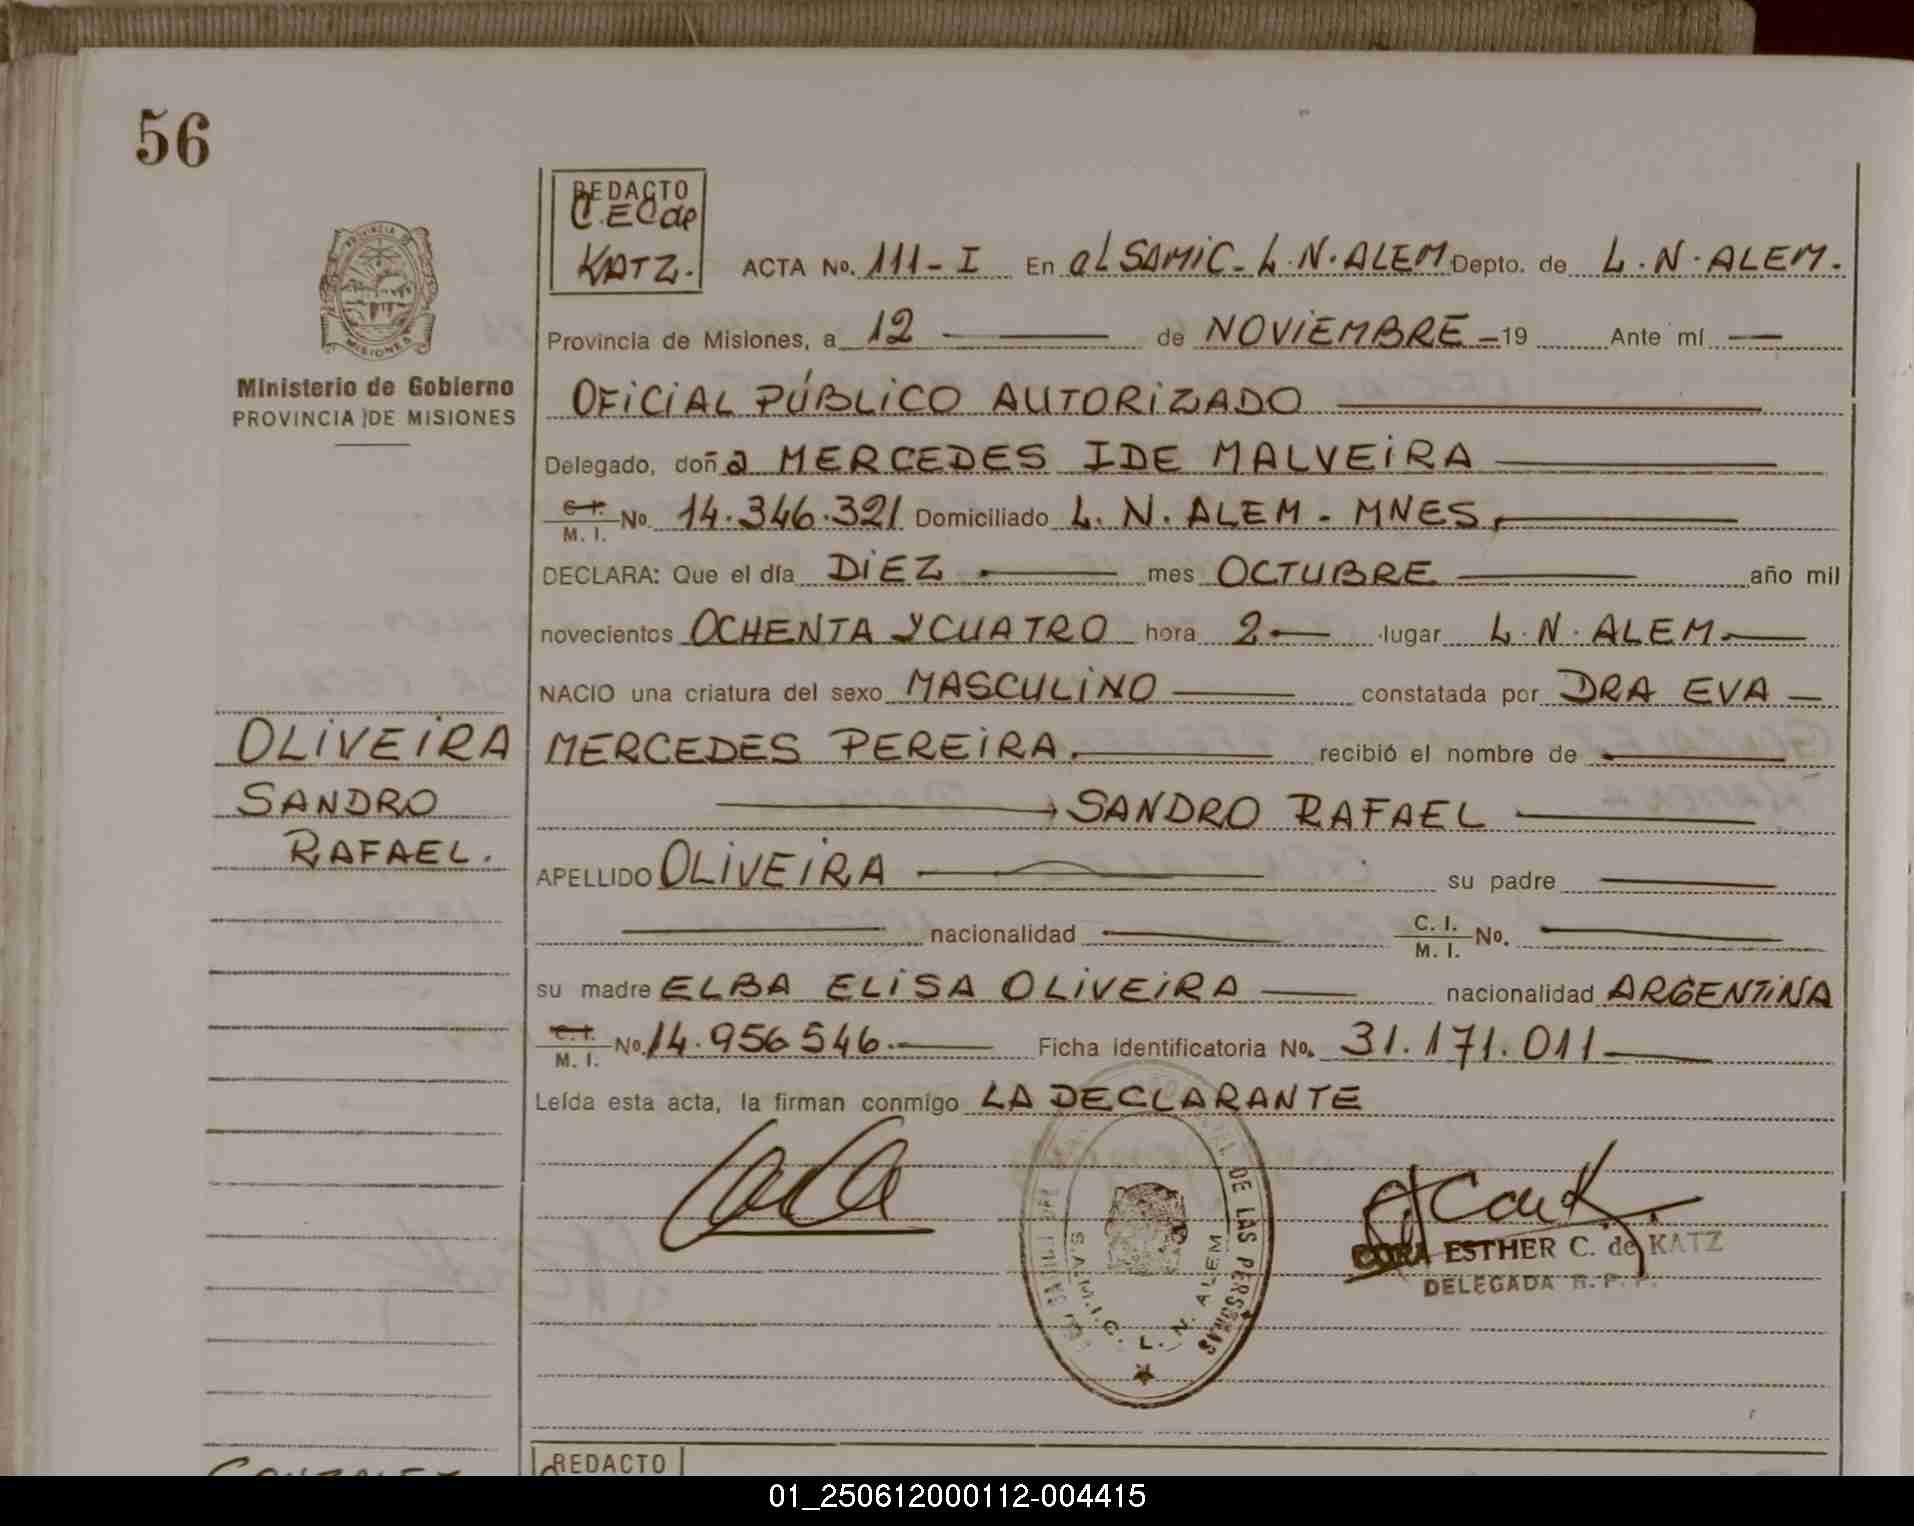 56
REDACTO
C.E.C de
KATZ.
ACTA No. 111-I En el SAMIC-L.N.ALEM Depto. de L.N.ALEM.
PROVINCIA DE
MISIONES
Ministerio de Gobierno
PROVINCIA DE MISIONES
Provincia de Misiones, a 12 de NOVIEMBRE 19 Ante mí
OFICIAL PÚBLICO AUTORIZADO
Delegado, doña MERCEDES IDE MALVEIRA
C. I. / M. I. No. 14.346.321 Domiciliado L. N. ALEM - MNES,
DECLARA: Que el día DIEZ mes OCTUBRE año mil
novecientos OCHENTA Y CUATRO hora 2 lugar L.N. ALEM.
NACIO una criatura del sexo MASCULINO constatada por DRA EVA
MERCEDES PEREIRA. recibió el nombre de
SANDRO RAFAEL
APELLIDO OLIVEIRA su padre
nacionalidad C. I. / M. I. No.
su madre ELBA ELISA OLIVEIRA nacionalidad ARGENTINA
C. I. / M. I. No. 14.956546. Ficha identificatoria No. 31.171.011
Leída esta acta, la firman conmigo LA DECLARANTE
OLIVEIRA
SANDRO
RAFAEL.
DE LAS PERSONAS
S.A.M.I.C. L. N. ALEM
CORA ESTHER C. de KATZ
DELEGADA R. P. P.
REDACTO
GONZALEZ
01_250612000112-004415